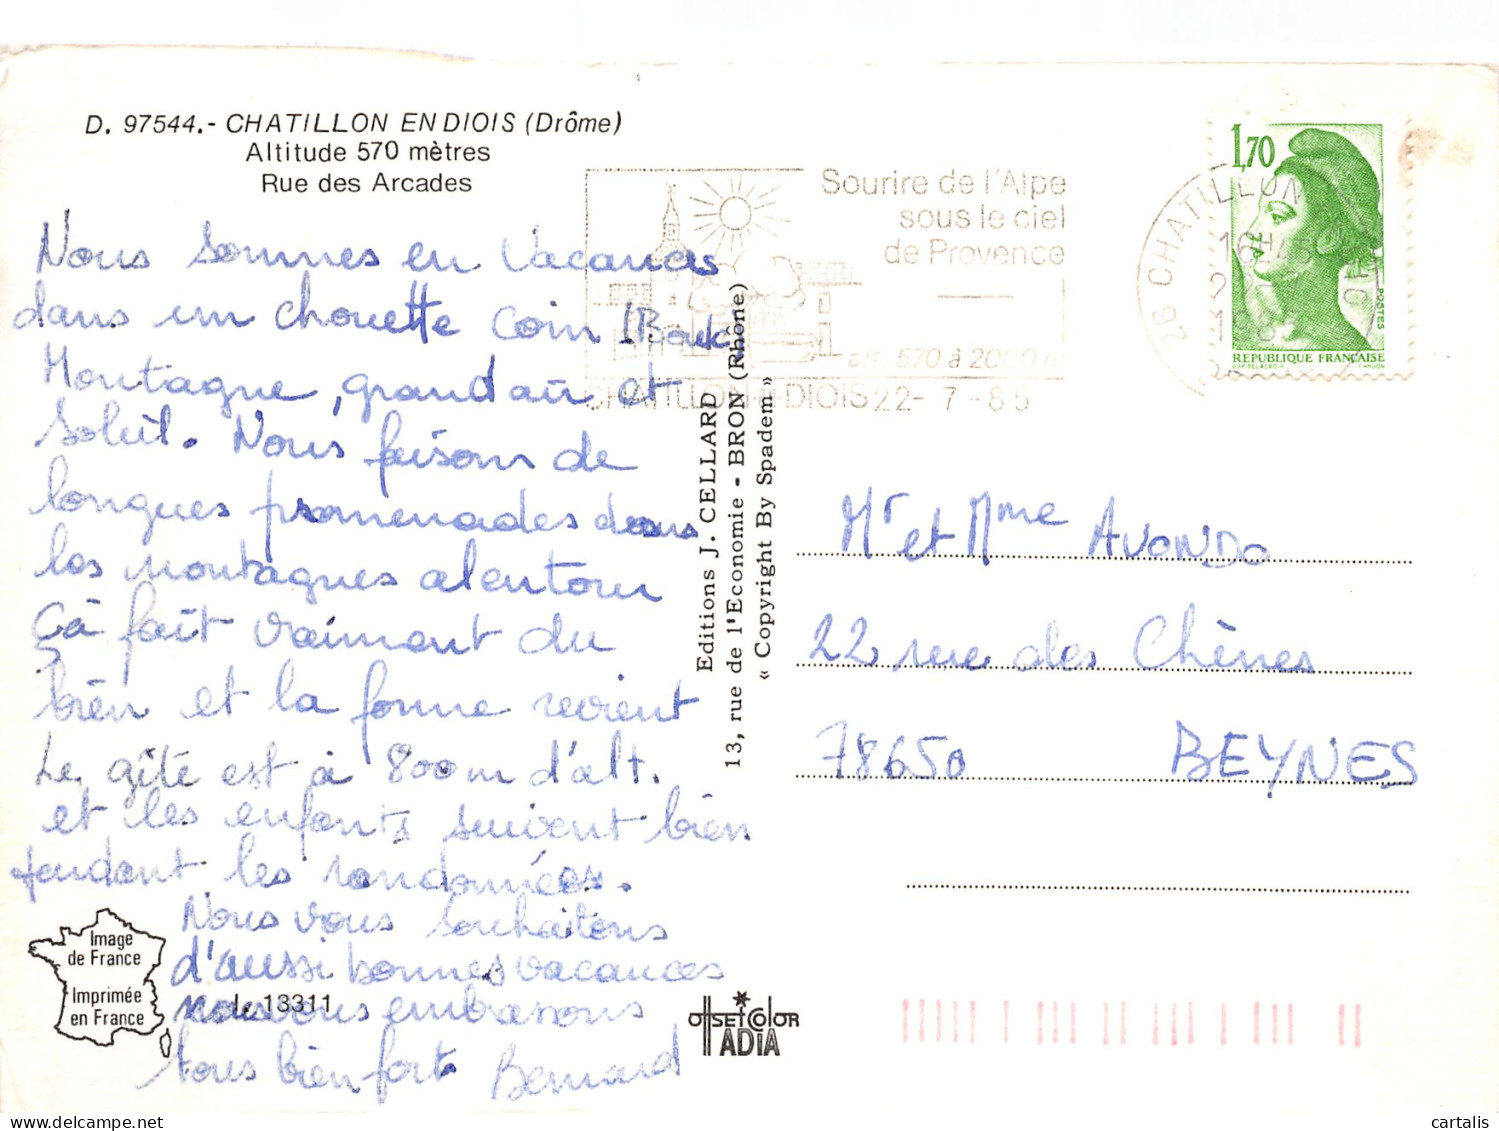 D. 97544.- CHATILLON EN DIOIS (Drôme)
Altitude 570 mètres
Rue des Arcades
Nous sommes en vacances
dans un chouette coin
Montagne, grand air et
soleil. Nous faisons de
longues promenades dans
les montagnes alentour
Çà fait vraiment du
bien et la forme revient
Le gîte est à 800m d'alt.
et les enfants suivent bien
pendant les randonnées.
Nous vous souhaitons
d'aussi bonnes vacances
nous vous embrassons
tous bien fort Bernard
Image
de France
Imprimée
en France
L. 13311
Sourire de l'Alpe
sous le ciel
de Provence
alt. 570 à 2000 m
CHATILLON-en-DIOIS 22-7-85
Editions J. CELLARD
13, rue de l'Economie - BRON (Rhône)
« Copyright By Spadem »
OFFSET COLOR
ADIA
26 CHATILLON
16H45
1,70
POSTES
REPUBLIQUE FRANÇAISE
Mr et Mme AVONDO
22 rue des Chênes
78650 BEYNES
cartalis